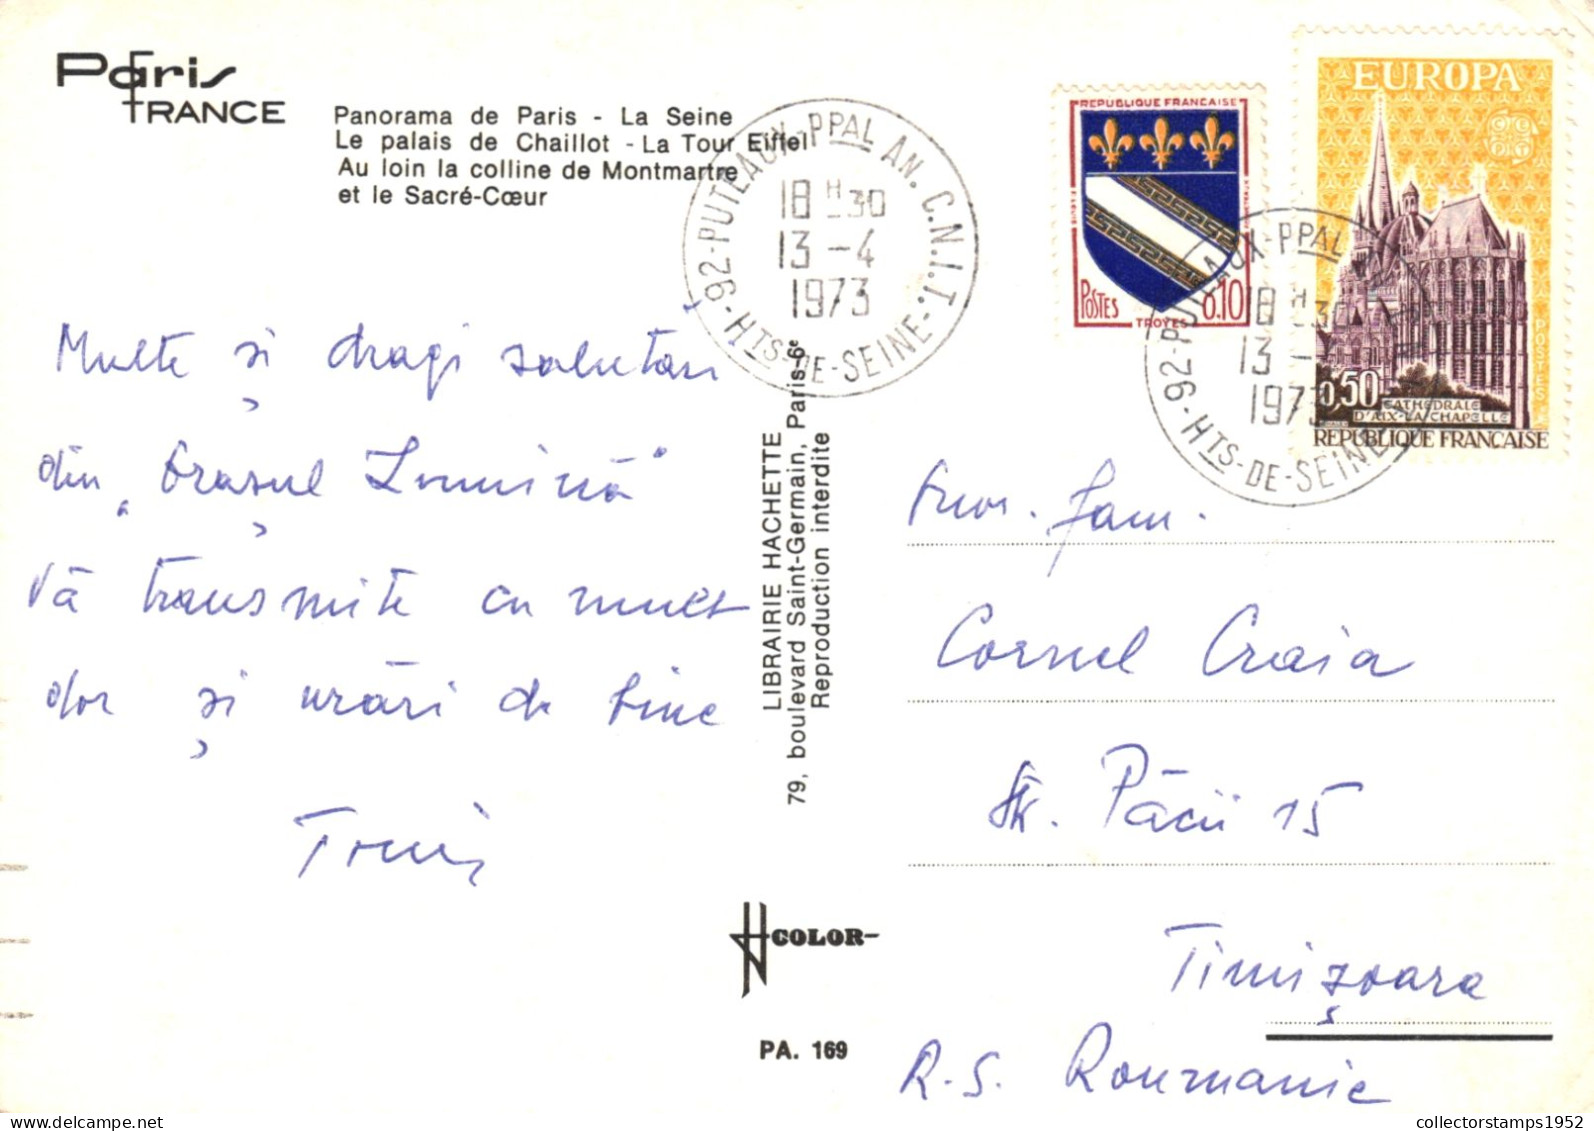 Paris
FRANCE
Panorama de Paris - La Seine
Le palais de Chaillot - La Tour Eiffel
Au loin la colline de Montmartre
et le Sacré-Cœur
92-PUTEAUX-PPAL AN. C.N.I.T.-HTS-DE-SEINE-
18 H 30
13 - 4
1973
REPUBLIQUE FRANÇAISE
POSTES
0.10
TROYES
EUROPA
POSTES
0,50
CATHEDRALE
D'AIX-LA-CHAPELLE
REPUBLIQUE FRANÇAISE
92-PUTEAUX-PPAL
18 H 30
13 -
1973
HTS-DE-SEINE
Multe și dragi salutări
din „Orașul Lumină"
Vă transmite cu mult
dor și urări de bine
LIBRAIRIE HACHETTE
79, boulevard Saint-Germain, Paris-6e
Reproduction interdite
COLOR
PA. 169
fam.
Cornel Craia
Str. Păcii 15
Timișoara
R.S. Roumanie
collectorstamps1952